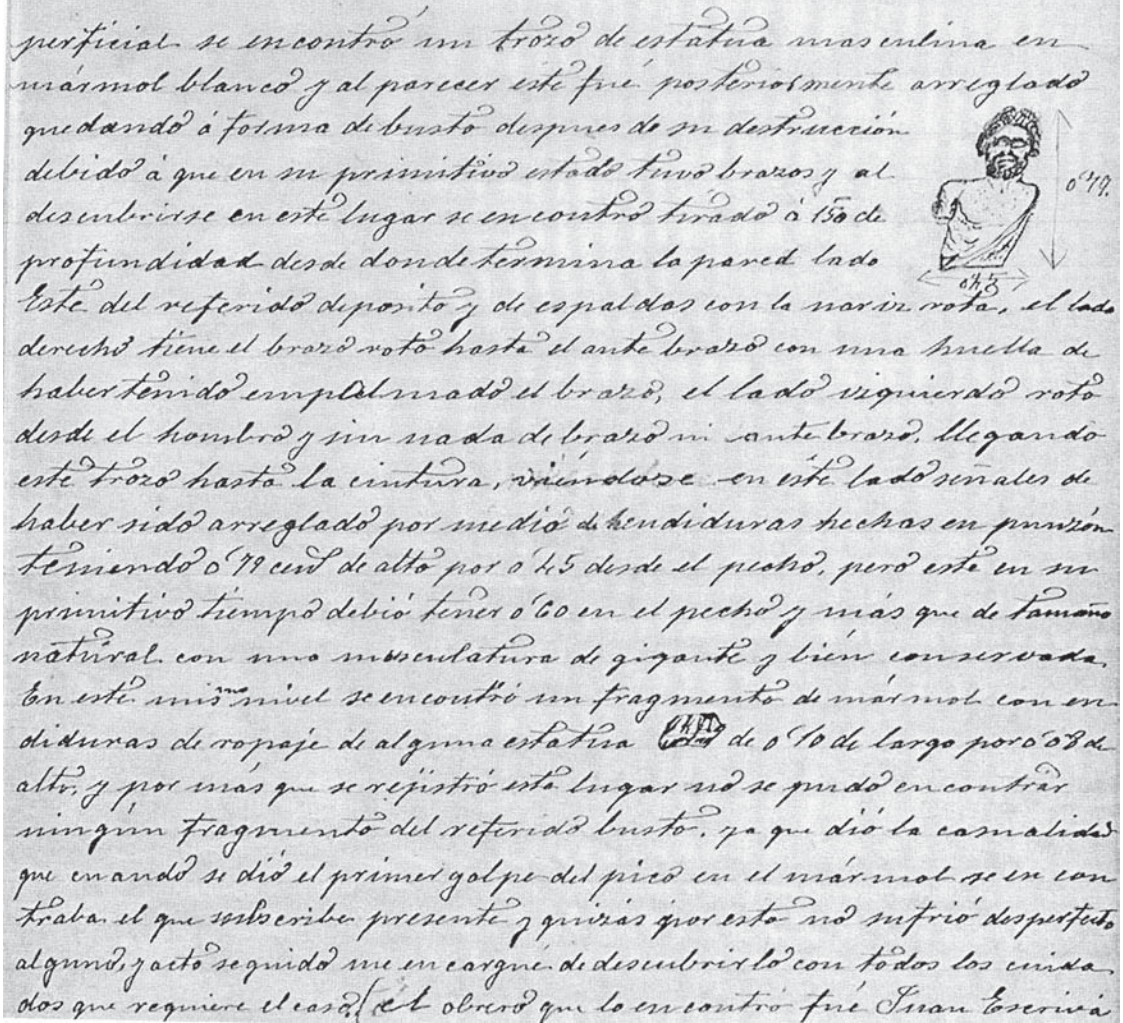 perficial se encontró un trozo de estatua masculina en
mármol blanco y al parecer este fué posteriormente arreglado
quedando á forma de busto despues de su destrucción
debido á que en su primitivo estado tuvo brazos y al
descubrirse en este lugar se encontró tirado á 1'50 de
profundidad desde donde termina la pared lado
Este del referido deposito y de espaldas con la nariz rota, el lado
derecho tiene el brazo roto hasta el ante brazo con una huella de
haber tenido empalmado el brazo, el lado izquierdo roto
desde el hombro y sin nada de brazo ni ante brazo, llegando
este trozo hasta la cintura, viéndose en este lado señales de
haber sido arreglado por medio de hendiduras hechas en punzón
teniendo ó'79 cent de alto por ó'45 desde el pecho, pero este en su
primitivo tiempo debió tener ó'60 en el pecho y más que de tamaño
natural con una musculatura de gigante y bién conservada.
En este mismo nivel se encontró un fragmento de mármol con en
diduras de ropaje de alguna estatua de ó'10 de largo por ó'08 de
alto, y por más que se rejistró este lugar no se pudo encontrar
ningún fragmento del referido busto, ya que dió la casualidad
que cuando se dió el primer golpe del pico en el mármol se en con
traba el que subscribe presente y quizás por esto no sufrió desperfecto
alguno, y acto seguido me encargué de descubrirlo con todos los cuida
dos que requiere el caso, (el obrero que lo encontró fué Juan Escrivá
ó'79.
ó'45